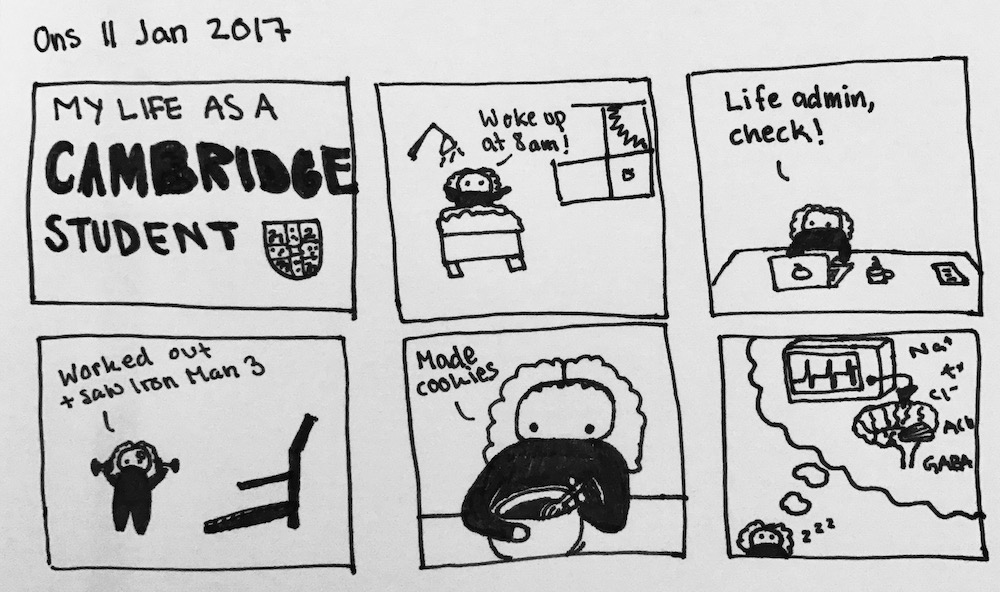 Ons 11 Jan 2017
MY LIFE AS A
CAMBRIDGE
STUDENT
Woke up
at 8am!
Life admin,
check!
Worked out
+ saw Iron Man 3
Made
cookies
zzz
Na⁺
Cl⁻
ACh
GABA